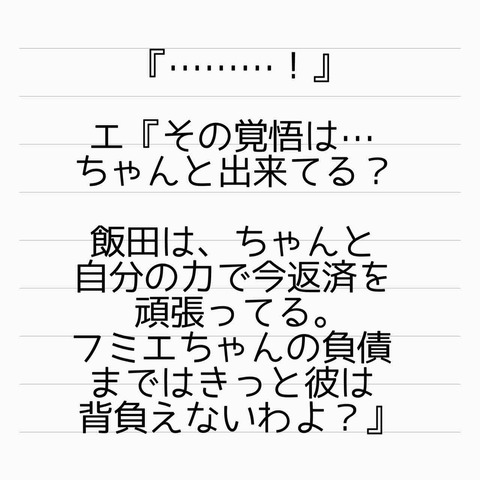 『………！』
エ『その覚悟は…
ちゃんと出来てる？
飯田は、ちゃんと
自分の力で今返済を
頑張ってる。
フミエちゃんの負債
まではきっと彼は
背負えないわよ？』